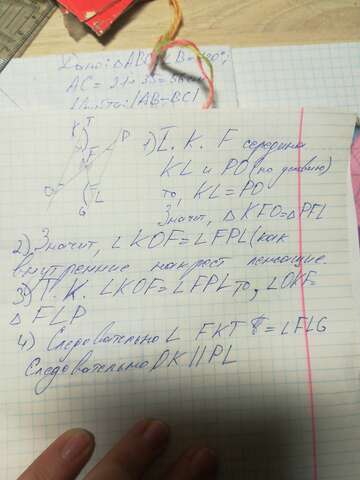 Дано: △ABC
AC = 21
|AB-BC|
K T
F P
O L
G
1) Т. К. F середина
KL и PO (по условию)
то, KL = PO
Значит, △KFO = △PFL
2) Значит, ∠KOF = ∠FPL (как
внутренние накрест лежащие
3) Т. К. ∠KOF = ∠FPL то, ∠OKF =
△ FLP
4) Следовательно ∠ FKT = ∠FLG
Следовательно OK || PL